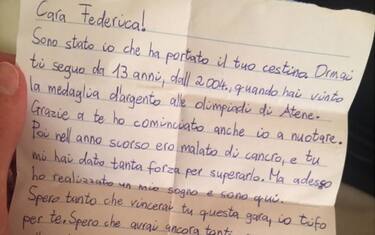 Cara Federica!
Sono stato io che ha portato il tuo cestino. Ormai
ti seguo da 13 anni, dall 2004, quando hai vinto
la medaglia d'argento alle olimpiadi di Atene.
Grazie a te ho cominciato anche io a nuotare.
Poi nell anno scorso ero malato di cancro, e tu
mi hai dato tanta forza per superarlo. Ma adesso
ho realizzato un mio sogno e sono qui.
Spero tanto che vincerai tu questa gara, io tifo
per te. Spero che avrai ancora tanti